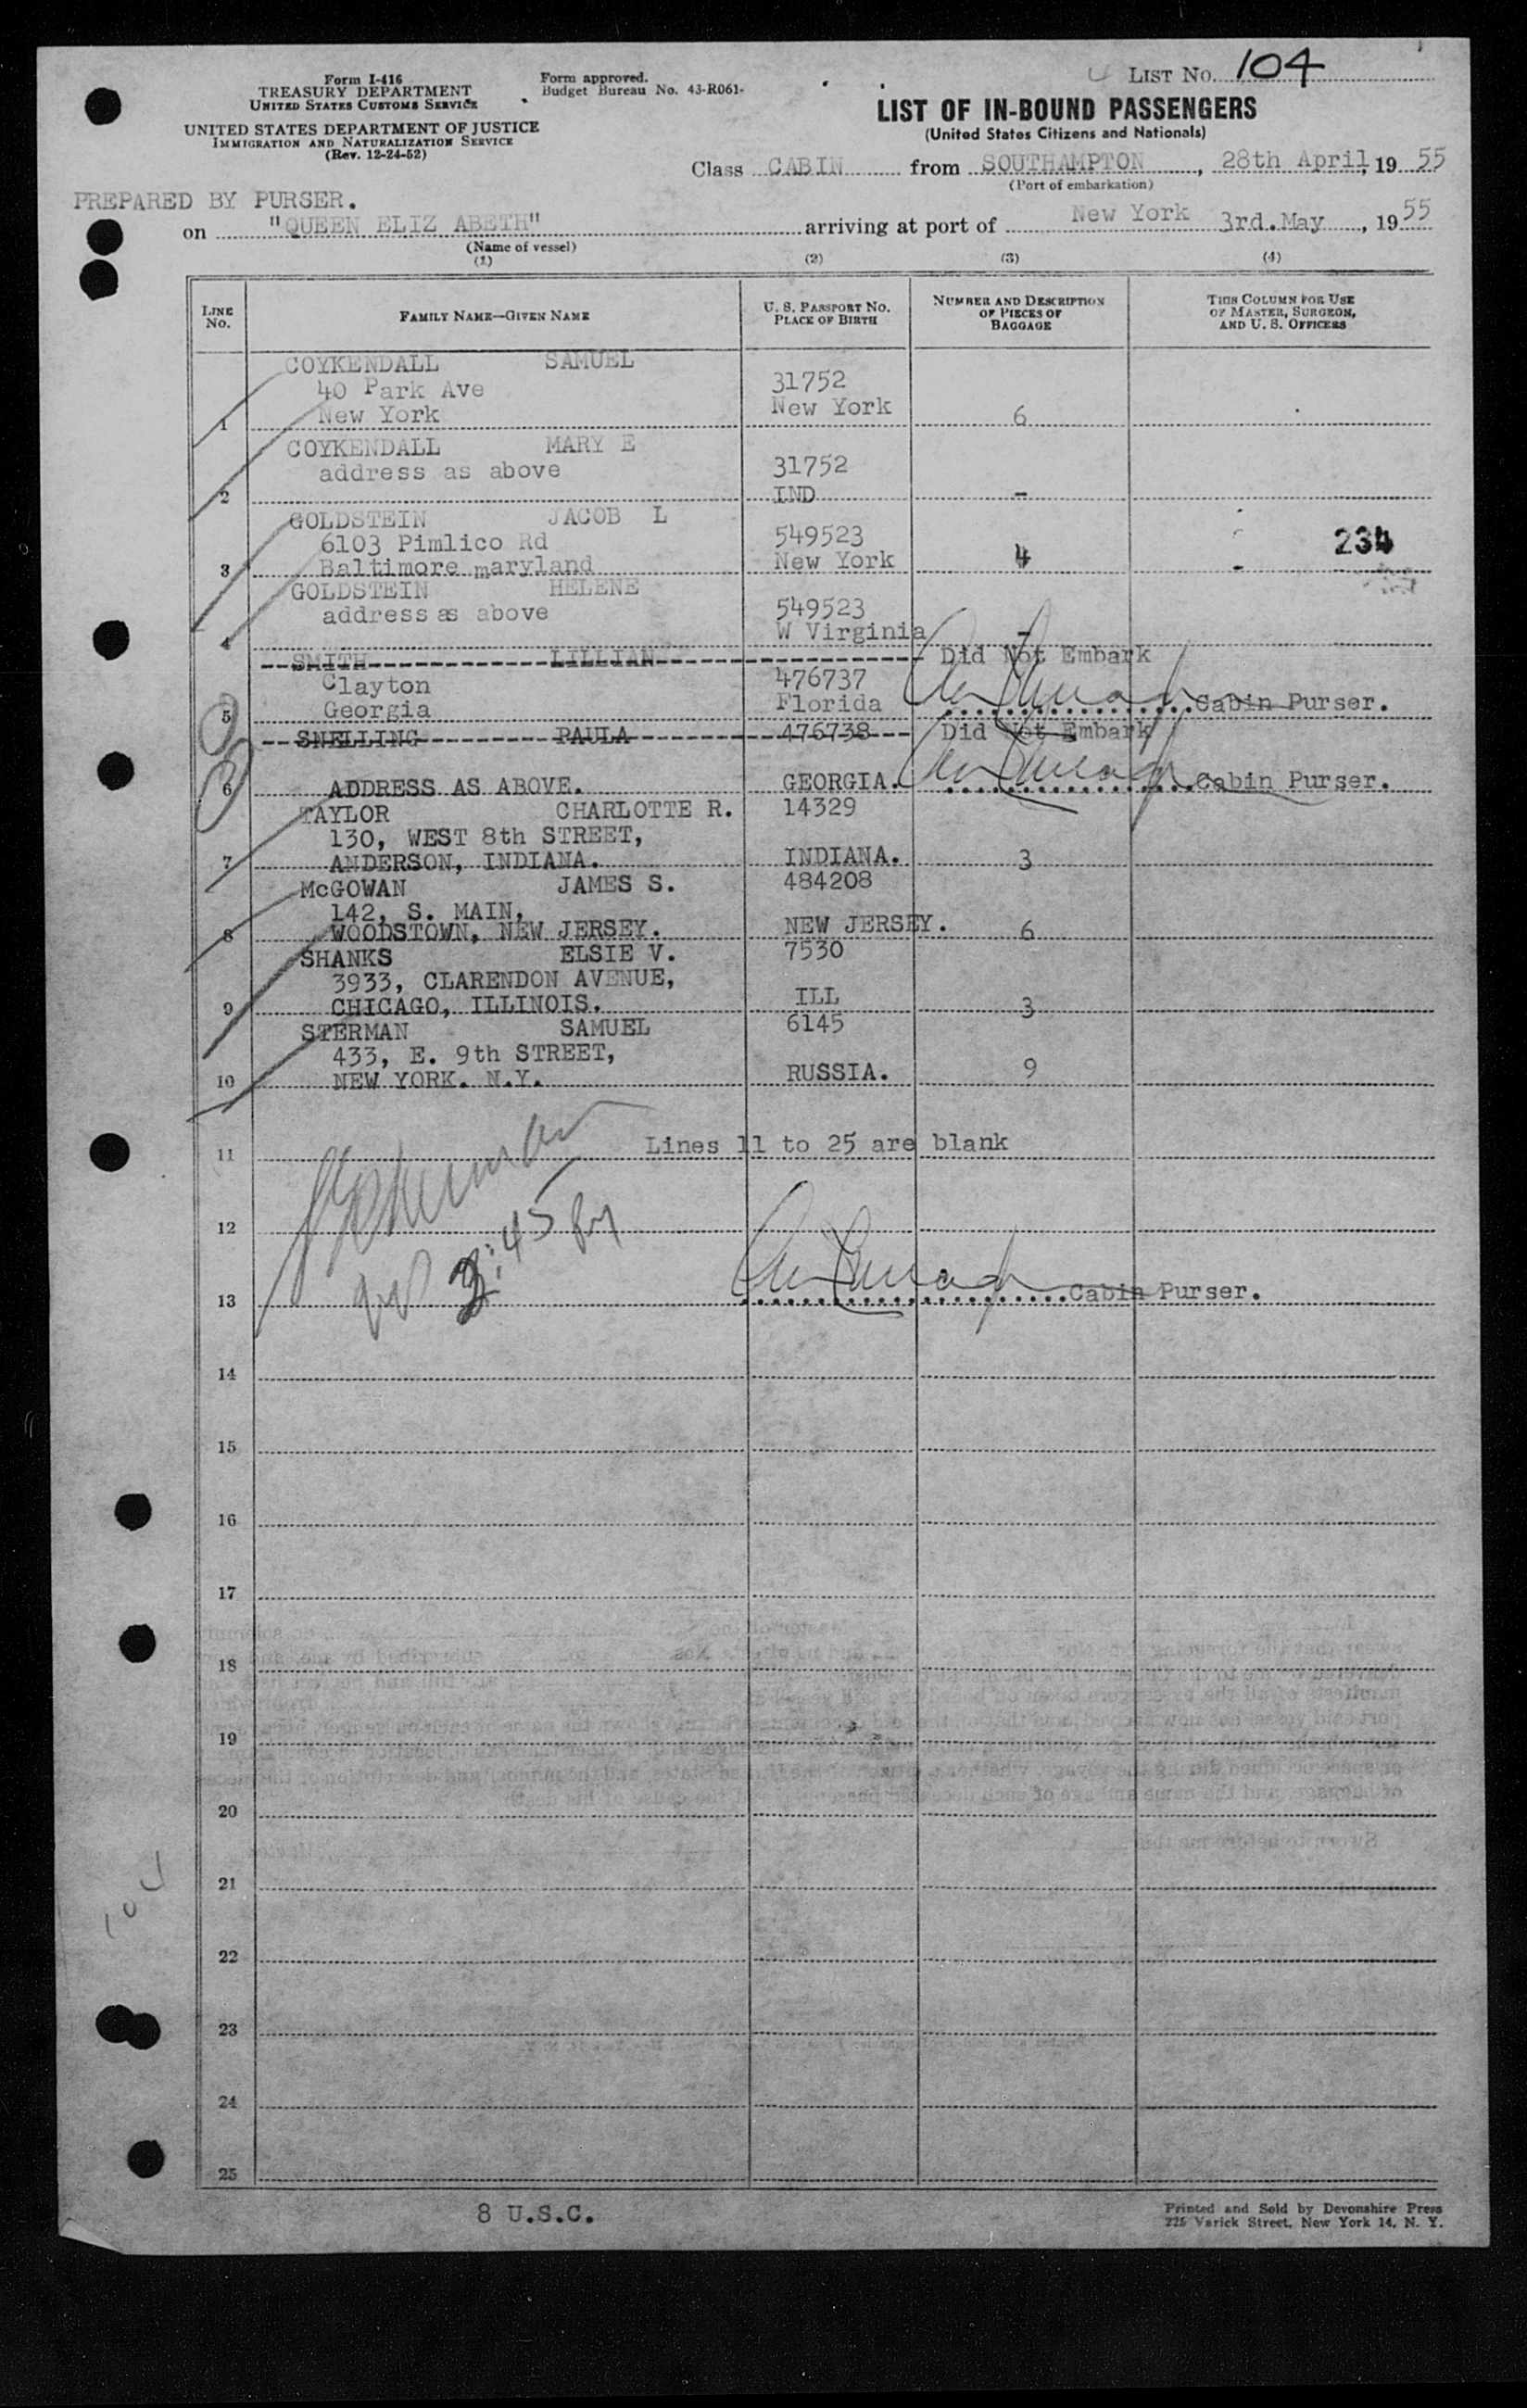 LIST NO. 104
Form I-416
TREASURY DEPARTMENT
UNITED STATES CUSTOMS SERVICE
Form approved.
Budget Bureau No. 43-R061-
UNITED STATES DEPARTMENT OF JUSTICE
IMMIGRATION AND NATURALIZATION SERVICE
(Rev. 12-24-52)
LIST OF IN-BOUND PASSENGERS
(United States Citizens and Nationals)
Class CABIN from SOUTHAMPTON, 28th April, 19 55
(Port of embarkation)
PREPARED BY PURSER.
on "QUEEN ELIZ ABETH" arriving at port of New York 3rd. May, 19 55
(Name of vessel)
(1) (2) (3) (4)
LINE NO. FAMILY NAME—GIVEN NAME U. S. PASSPORT NO. PLACE OF BIRTH NUMBER AND DESCRIPTION OF PIECES OF BAGGAGE THIS COLUMN FOR USE OF MASTER, SURGEON, AND U. S. OFFICERS
COYKENDALL SAMUEL
40 Park Ave 31752
1 New York New York 6
COYKENDALL MARY E
address as above 31752
2 IND -
GOLDSTEIN JACOB L
6103 Pimlico Rd 549523 234
3 Baltimore maryland New York 4 -
GOLDSTEIN HELENE
address as above 549523
4 W Virginia -
SMITH LILLIAN Did Not Embark
Clayton 476737
5 Georgia Florida Cabin Purser.
SNELLING PAULA 476738 Did Not Embark
6 ADDRESS AS ABOVE. GEORGIA. Cabin Purser.
TAYLOR CHARLOTTE R. 14329
130, WEST 8th STREET,
7 ANDERSON, INDIANA. INDIANA. 3
McGOWAN JAMES S. 484208
142, S. MAIN,
8 WOODSTOWN, NEW JERSEY. NEW JERSEY. 6
SHANKS ELSIE V. 7530
3933, CLARENDON AVENUE,
9 CHICAGO, ILLINOIS. ILL 3
STERMAN SAMUEL 6145
433, E. 9th STREET,
10 NEW YORK. N.Y. RUSSIA. 9
11 Lines 11 to 25 are blank
12
2:45 pm
13 Cabin Purser.
14
15
16
17
18
19
20
21
22
23
24
25
8 U.S.C.
Printed and Sold by Devonshire Press
225 Varick Street, New York 14, N. Y.